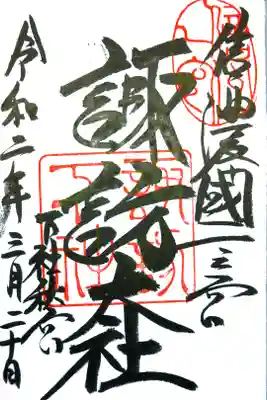 信濃國一之宮
諏訪大社
下社秋宮
令和二年三月二十日